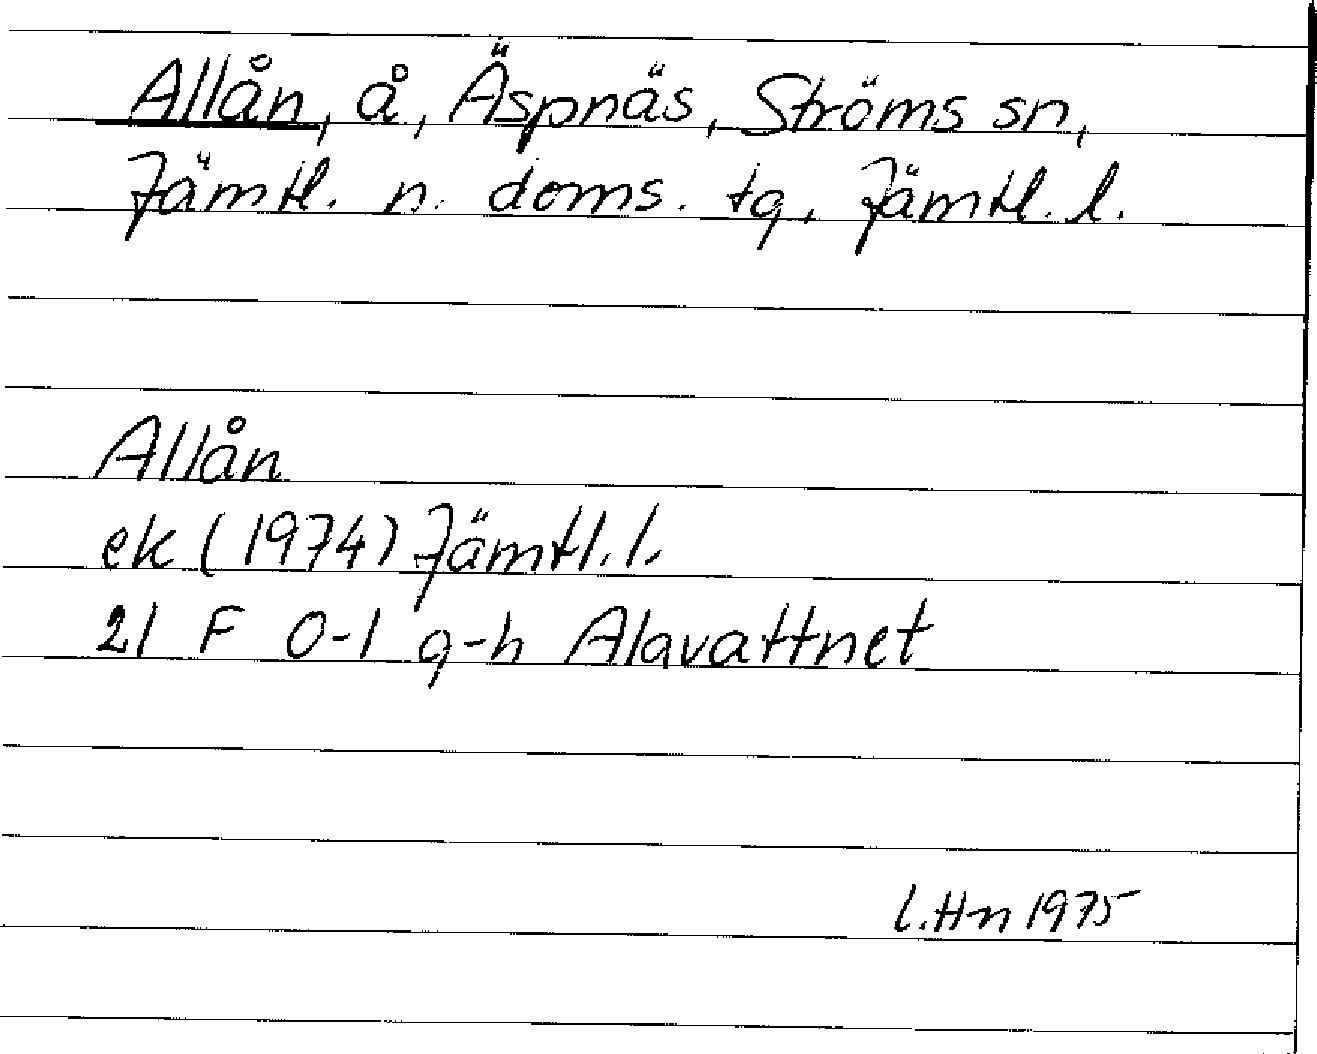 Allån, å, Äspnäs, Ströms sn,
Jämtl. n. doms. tg, Jämtl. l.
Allån
ek (1974) Jämtl. l.
21 F 0-1 g-h Alavattnet
L.Hn 1975